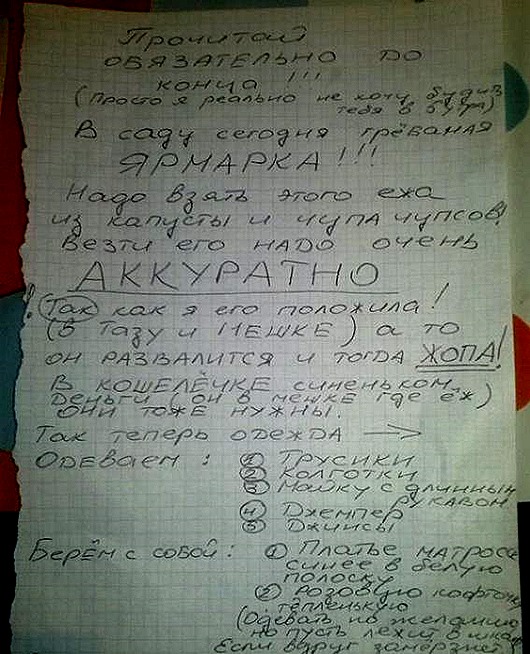 Прочитай
ОБЯЗАТЕЛЬНО ДО
КОНЦА !!!
(Просто я реально не хочу будить
тебя в 6 утра)
В саду сегодня грёбаная
ЯРМАРКА!!!
Надо взять этого ежа
из капусты и чупа чупсов!
Везти его НАДО очень
АККУРАТНО
! Так как я его положила!
(В ТАЗУ и МЕШКЕ) а то
он РАЗВАЛИТСЯ и тогда ЖОПА!
В КОШЕЛЁЧКЕ синеньком
деньги (он в мешке где ёж)
они тоже нужны.
Так теперь одежда →
Одеваем: ① Трусики
② Колготки
③ Майку с длинным
рукавом
④ Джемпер
⑤ Джинсы
Берём с собой: ① Платье матроса
синее в белую
полоску
② Розовую кофточку
тёпленькую
(Одевать по желанию
но пусть лежит в шка
Если вдруг замёрзнет